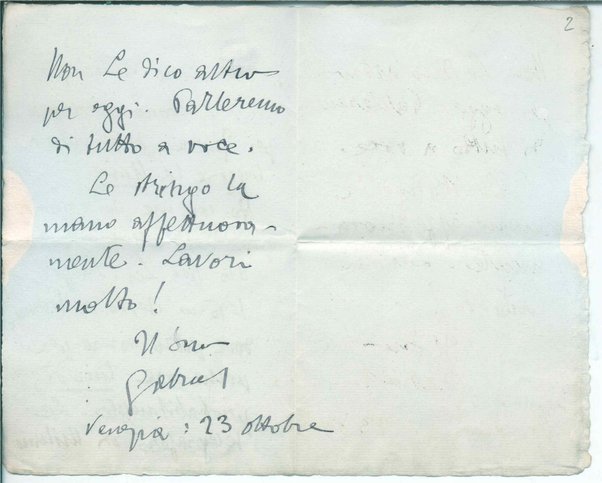 2
Non Le dico altro
per oggi. Parleremo
di tutto a voce.
Le stringo la
mano affettuosa-
mente. Lavori
molto!
Il suo
Gabriel
Venezia: 23 ottobre